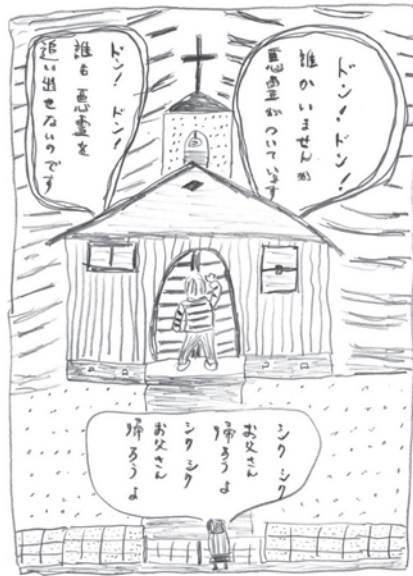 ドン！ドン！
誰かいませんか
悪霊がついています
ドン！ドン！
誰も悪霊を
追い出せないのです
シク シク
お父さん
帰ろうよ
シク シク
お父さん
帰ろうよ